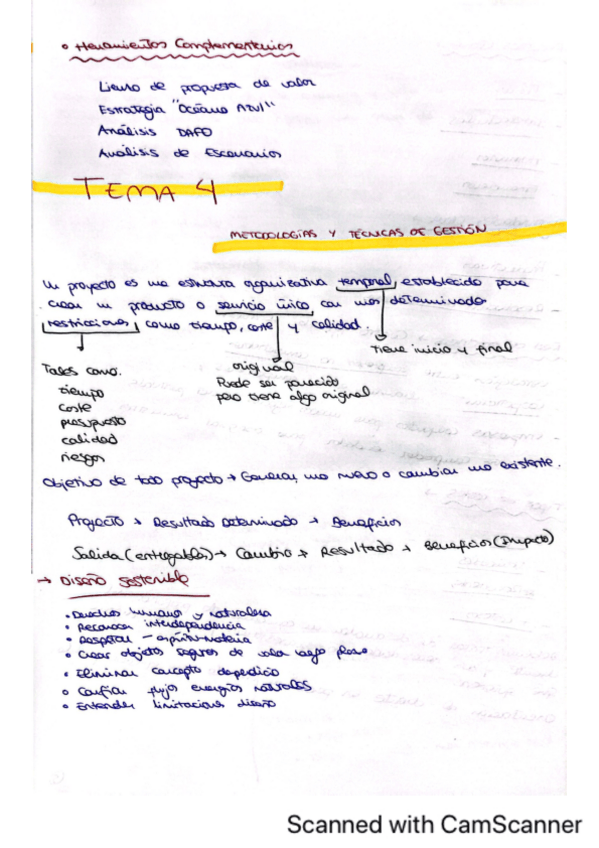 • Herramientas Complementarias
Lienzo de propuesta de valor
Estrategia "Océano Azul"
Análisis DAFO
Análisis de Escenarios
TEMA 4
METODOLOGÍAS Y TÉCNICAS DE GESTIÓN
Un proyecto es una estructura organizativa temporal, establecida para
crear un producto o servicio único con unas determinadas
restricciones, como tiempo, coste y calidad.
Tiene inicio y final
Tales como:
tiempo
coste
presupuesto
calidad
riesgos
original
Puede ser parecido
pero tiene algo original
Objetivo de todo proyecto → Generar, uno nuevo o cambiar uno existente.
Proyecto → Resultado Determinado → Beneficios
Salida (entregables) → Cambio → Resultado → Beneficios (Impacto)
→ Diseño Sostenible
• Derechos humanos y naturaleza
• Reconocer interdependencia
• Respetar - espíritu-materia
• Crear objetos seguros de valor largo plazo
• Eliminar concepto desperdicio
• Confiar flujos energías naturales
• Entender limitaciones diseño
Scanned with CamScanner